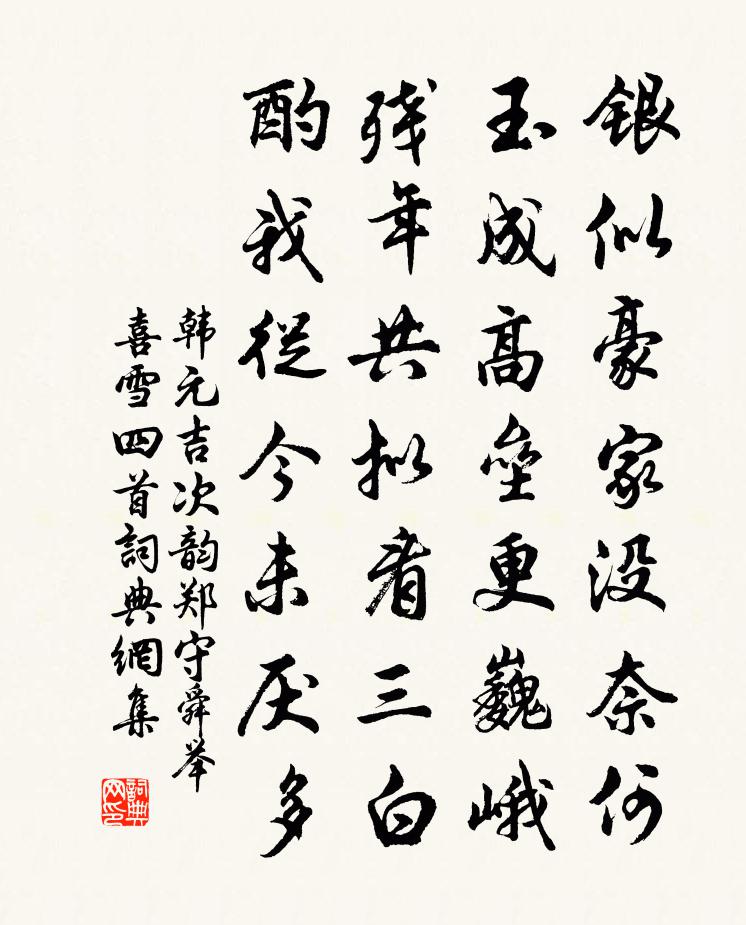 银似豪家没奈何
玉成高垒更巍峨
残年共拟看三白
酌我从今未厌多
韩元吉次韵郑守舜举
喜雪四首詞典網集
詞典网印